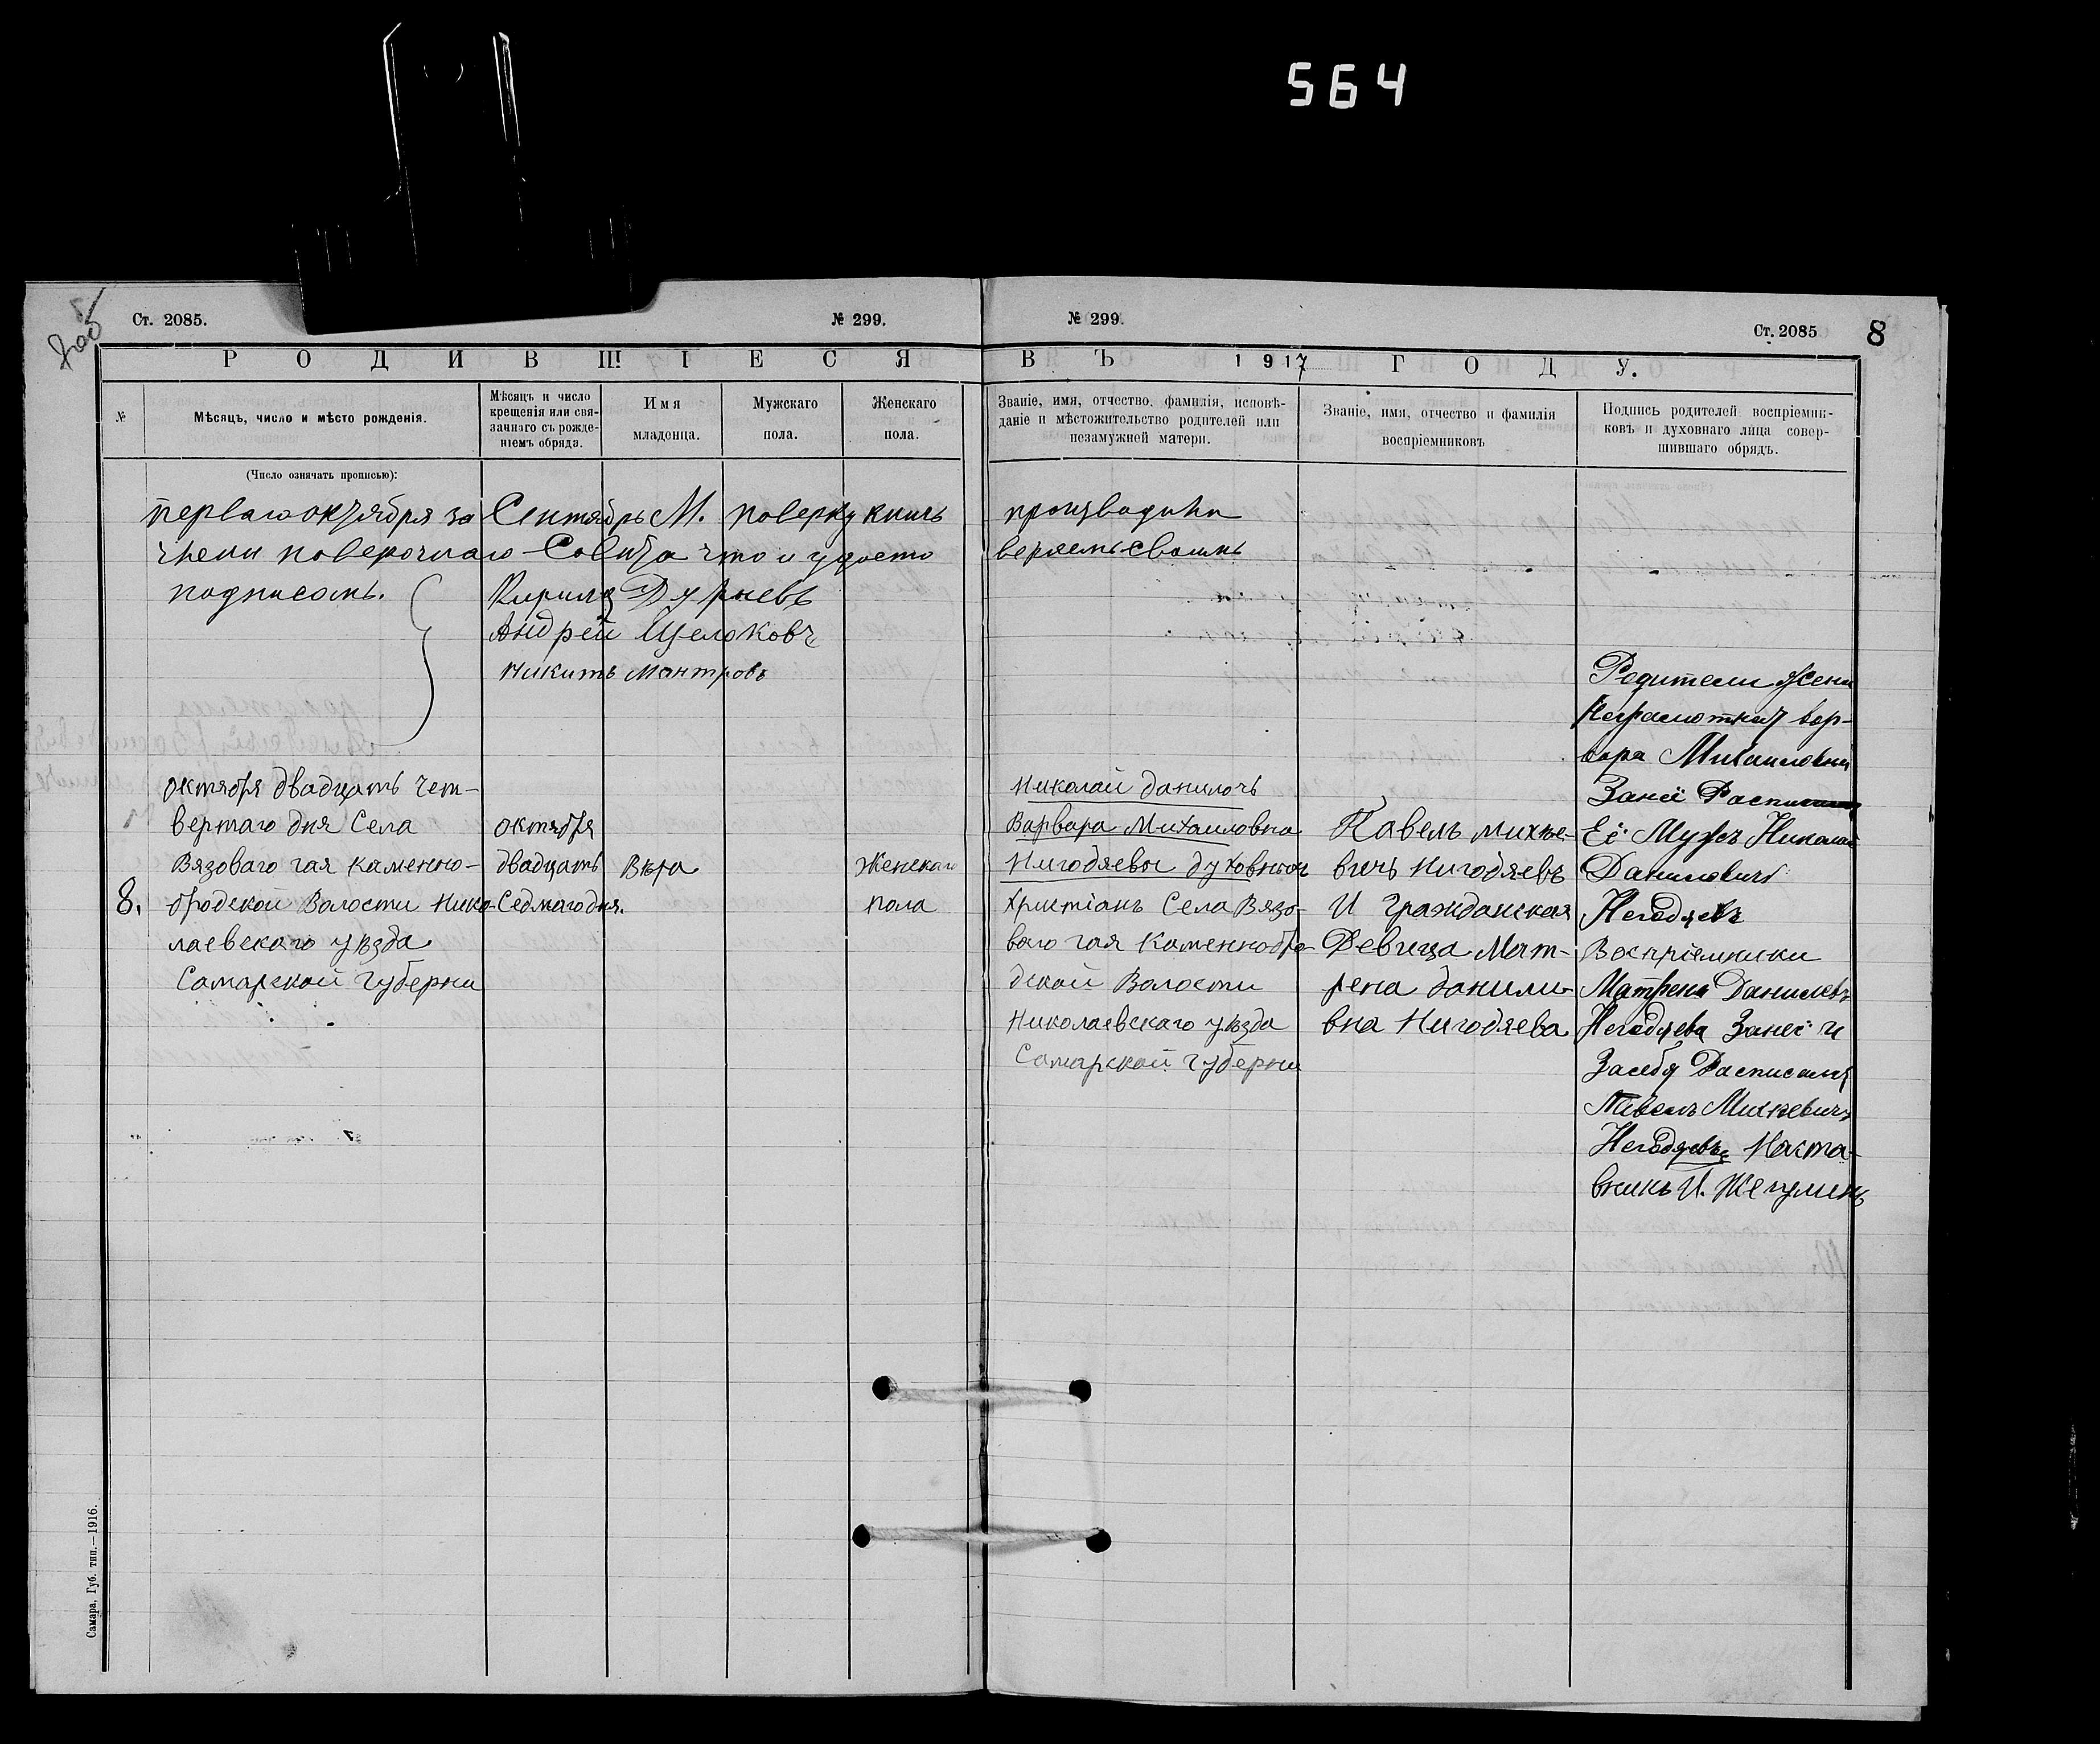 564
Ст. 2085.
№ 299.
№ 299.
Ст. 2085
8
РОДИВШІЕСЯ
ВЪ 1917 ГОДУ.
№
Мѣсяцъ, число и мѣсто рожденія.
Мѣсяцъ и число
крещенія или свя-
заннаго съ рожде-
ніемъ обряда.
Имя
младенца.
Мужскаго
пола.
Женскаго
пола.
Званіе, имя, отчество, фамилія, исповѣ-
даніе и мѣстожительство родителей или
незамужней матери.
Званіе, имя, отчество и фамилія
воспріемниковъ
Подпись родителей воспріемни-
ковъ и духовнаго лица совер-
шившаго обрядъ.
(Число означать прописью):
перваго октября за Сентябрь М. поверку книгъ производили
члени поверочнаго Совѣта что и удосто веряемъ своимъ
подписомъ.
Кирилъ Дурневъ
Андрей Щелоковъ
Никитъ Мантровъ
8.
октября двадцать чет-
вертаго дня Села
Вязоваго гая каменно-
бродской Волости Нико-
лаевскаго уѣзда
Самарской губерни
октября
двадцать
Седмаго дня.
Вѣра
Женскаго
пола
Николай данилочъ
Варвара Михаиловна
Нигодяевы духовныхъ
христіанъ Села Вязо-
ваго гая Каменнобро-
дской Волости
Николаевскаго уѣзда
Самарской губерни
Павелъ михѣе-
вичъ Нигодяевъ
И Гражданская
Девица Мат-
рена данили-
вна Нигодяева
Родители Жена
Неграмотная вар-
вара Михаиловна
Занеё
Её Мужъ Николай
Даниловичъ
Негодяевъ
Воспріемники
Матрена Данилевъ
Негодяева Занеё и
Засебя Росписался
Павелъ Михѣевичъ
Негодяевъ Наста-
вникъ И.
Самара, Губ. тип.—1916.